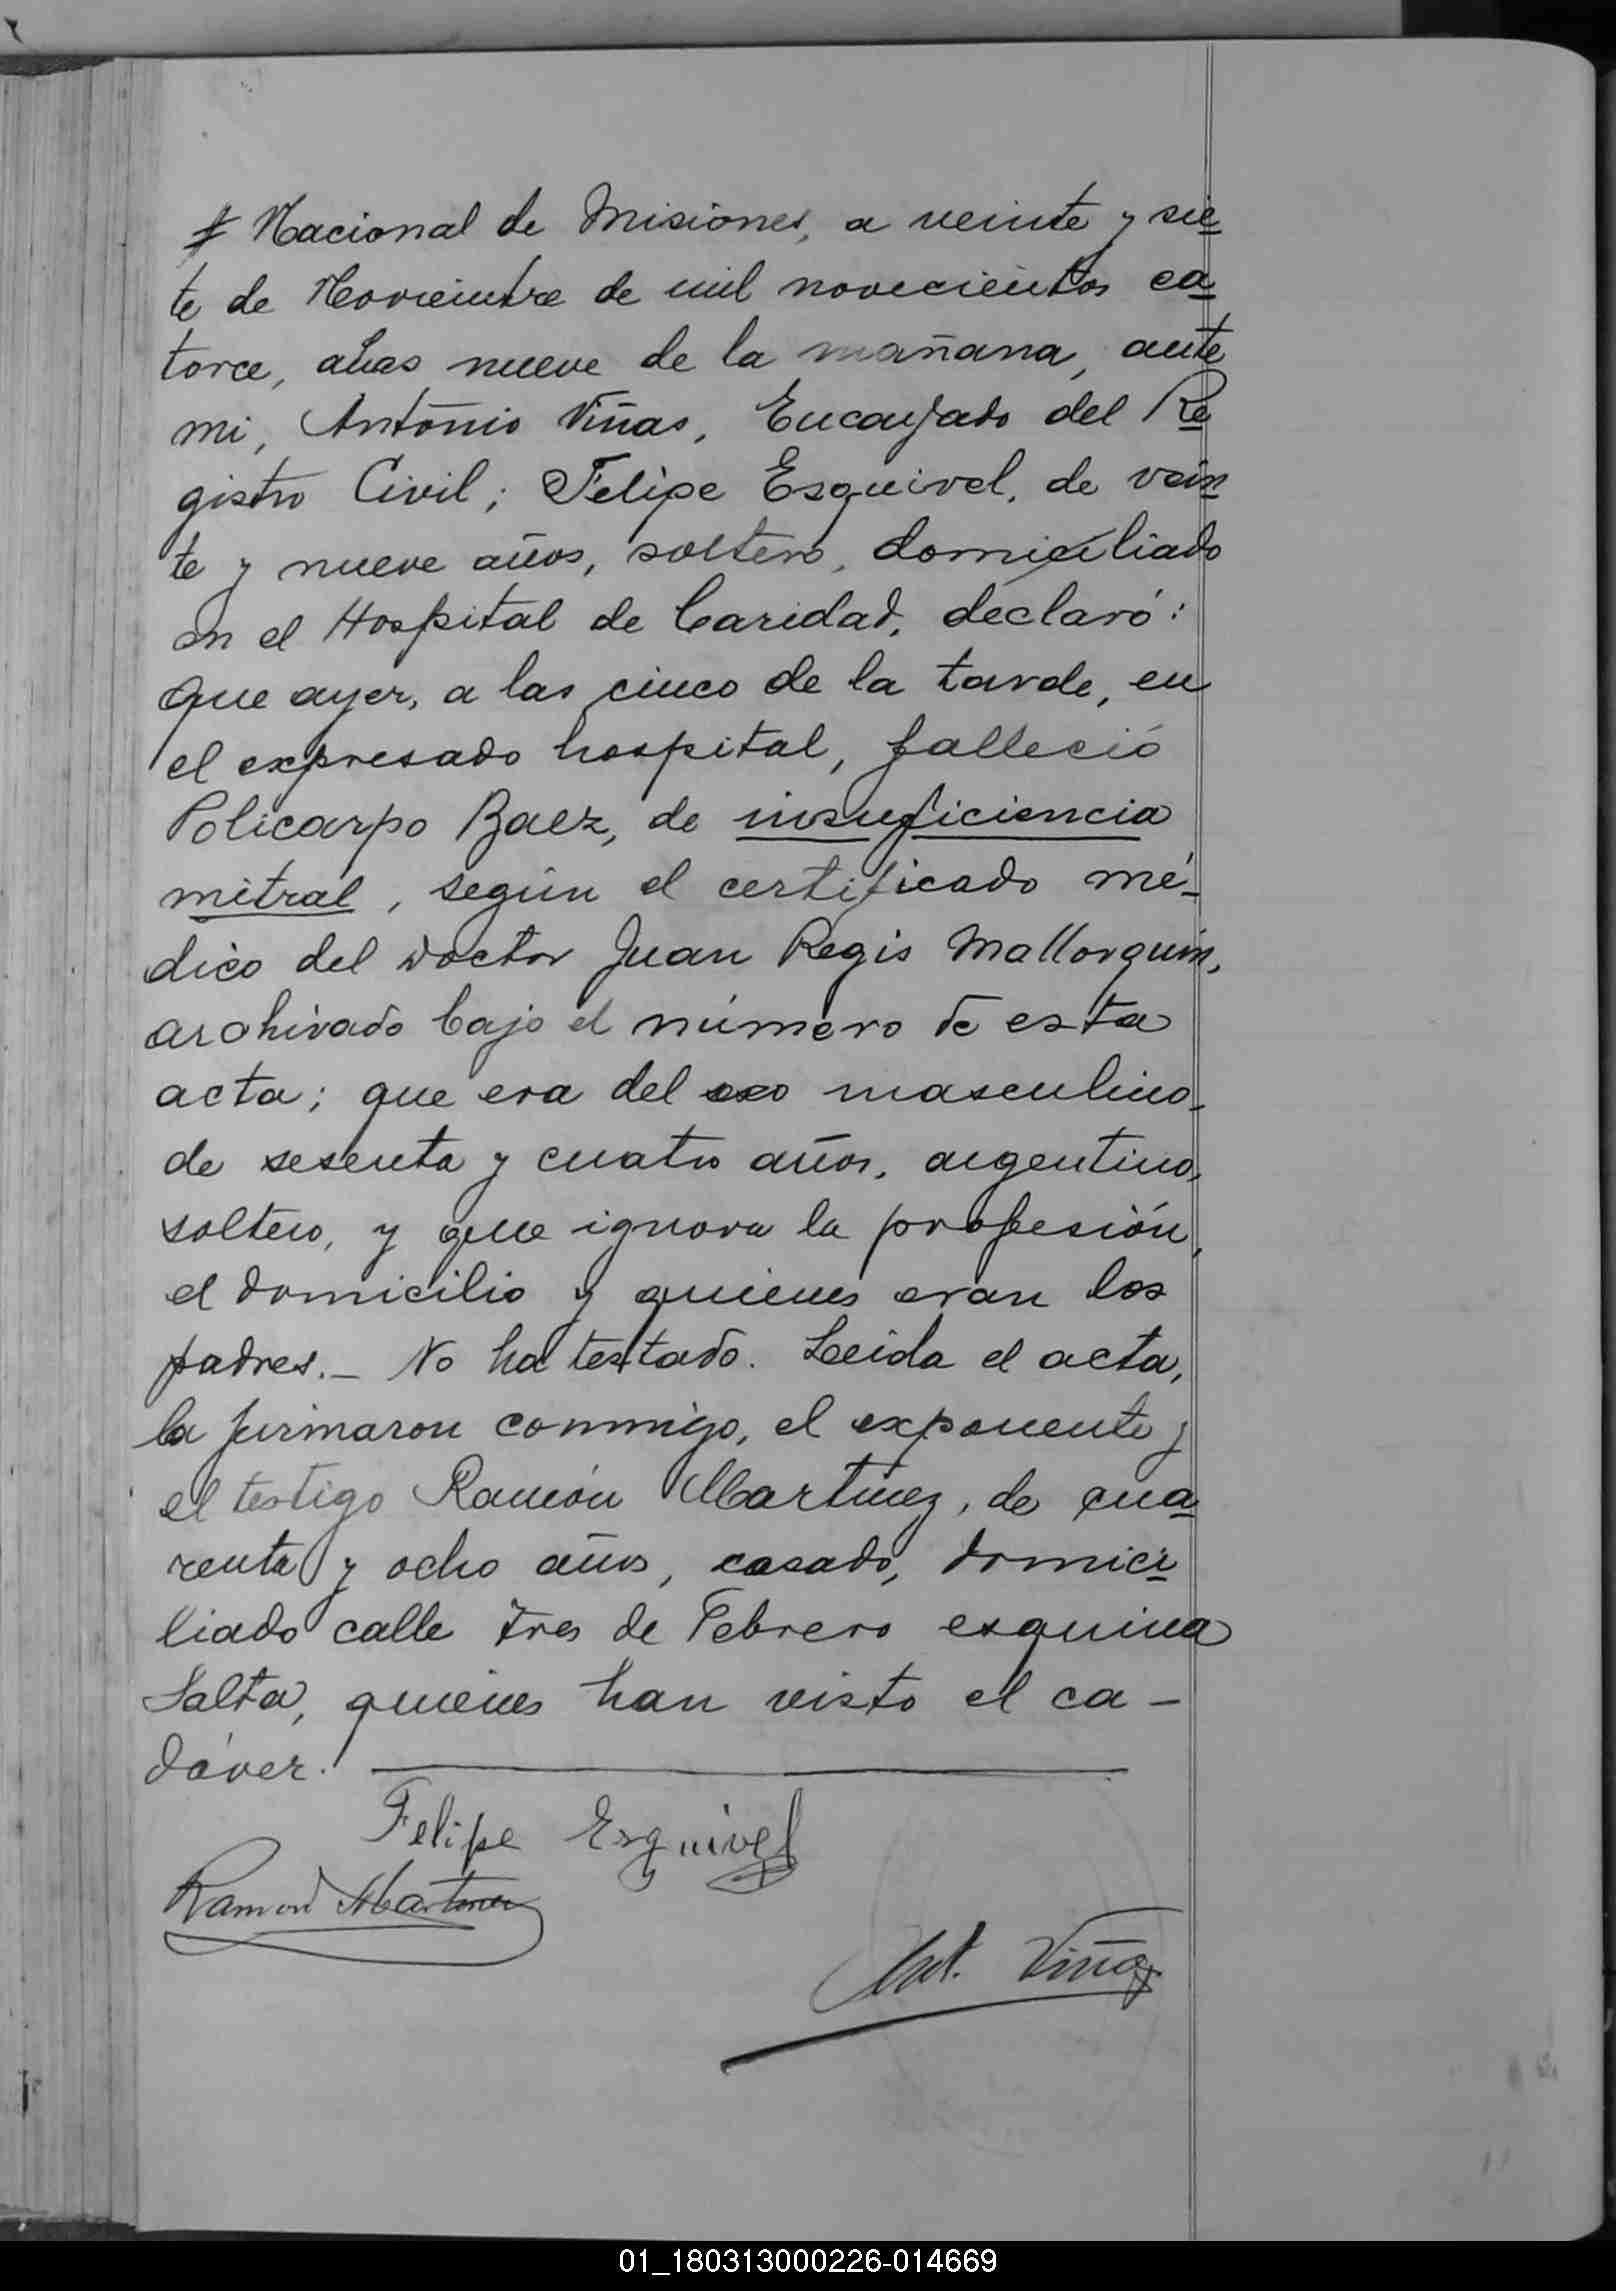 # Nacional de Misiones, a veinte y sie
te de Noviembre de mil novecientos ca
torce, a las nueve de la mañana, ante
mi, Antonio Viñas, Encargado del Re
gistro Civil; Felipe Esquivel, de vein
te y nueve años, soltero, domiciliado
en el Hospital de Caridad, declaró:
que ayer, a las cinco de la tarde, en
el expresado hospital, falleció
Policarpo Baez, de insuficiencia
mitral, según el certificado mé-
dico del doctor Juan Regis Mallorquin,
archivado bajo el número de esta
acta; que era del sexo masculino,
de sesenta y cuatro años, argentino,
soltero, y que ignora la profesión,
el domicilio y quienes eran los
padres.- No ha testado. Leida el acta,
la firmaron conmigo, el exponente y
el testigo Ramón Martinez, de cua
renta y ocho años, casado, domici
liado calle tres de Febrero esquina
Salta, quienes han visto el ca-
dáver.
Felipe Esquivel
Ramon Martinez
Ant. Viñas
01_180313000226-014669